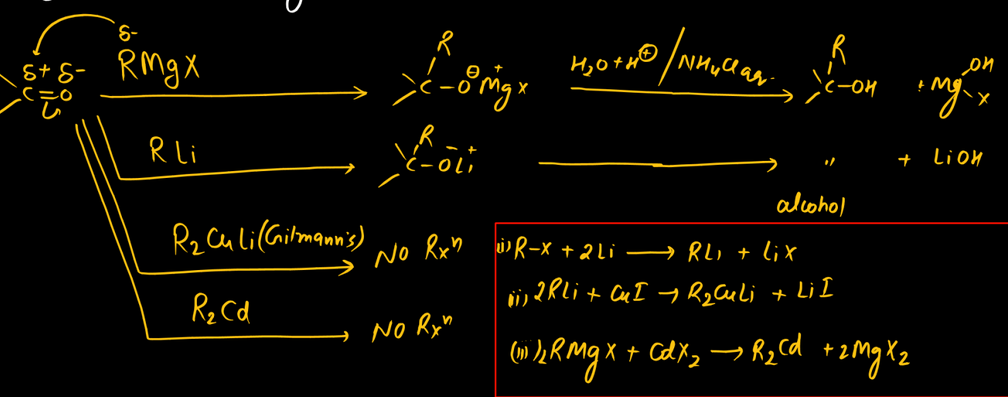 δ-
δ+ δ- RMgX
C=O
R
C-O⊖ Mg+ X
H2O+H⊕/NH4Cl aq.
R
C-OH + Mg OH X
RLi
R
C-O- Li+
" + LiOH
alcohol
R2CuLi(Gilmann's) NO Rxn
R2Cd NO Rxn
i) R-X + 2Li → RLi + LiX
ii) 2RLi + CuI → R2CuLi + LiI
(iii) 2RMgX + CdX2 → R2Cd + 2MgX2